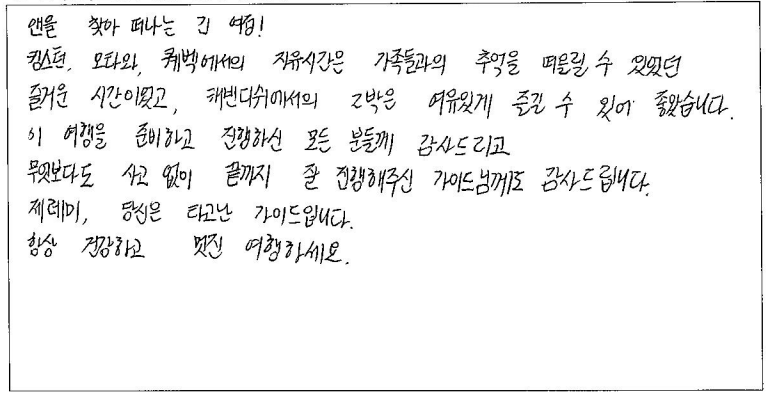 앤을 찾아 떠나는 긴 여정!
킹스턴, 오타와, 퀘벡에서의 자유시간은 가족들과의 추억을 떠올릴 수 있었던
즐거운 시간이었고, 캐빈디쉬에서의 2박은 여유있게 즐길 수 있어 좋았습니다.
이 여행을 준비하고 진행하신 모든 분들께 감사드리고
무엇보다도 사고 없이 끝까지 잘 진행해주신 가이드님께도 감사드립니다.
제레미, 당신은 타고난 가이드입니다.
항상 건강하고 멋진 여행하세요.